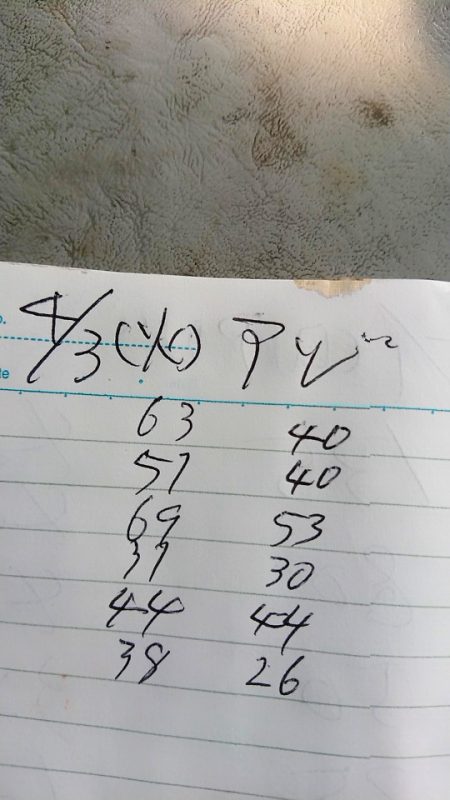 4/3
63 40
57 40
69 53
37 30
44 44
38 26